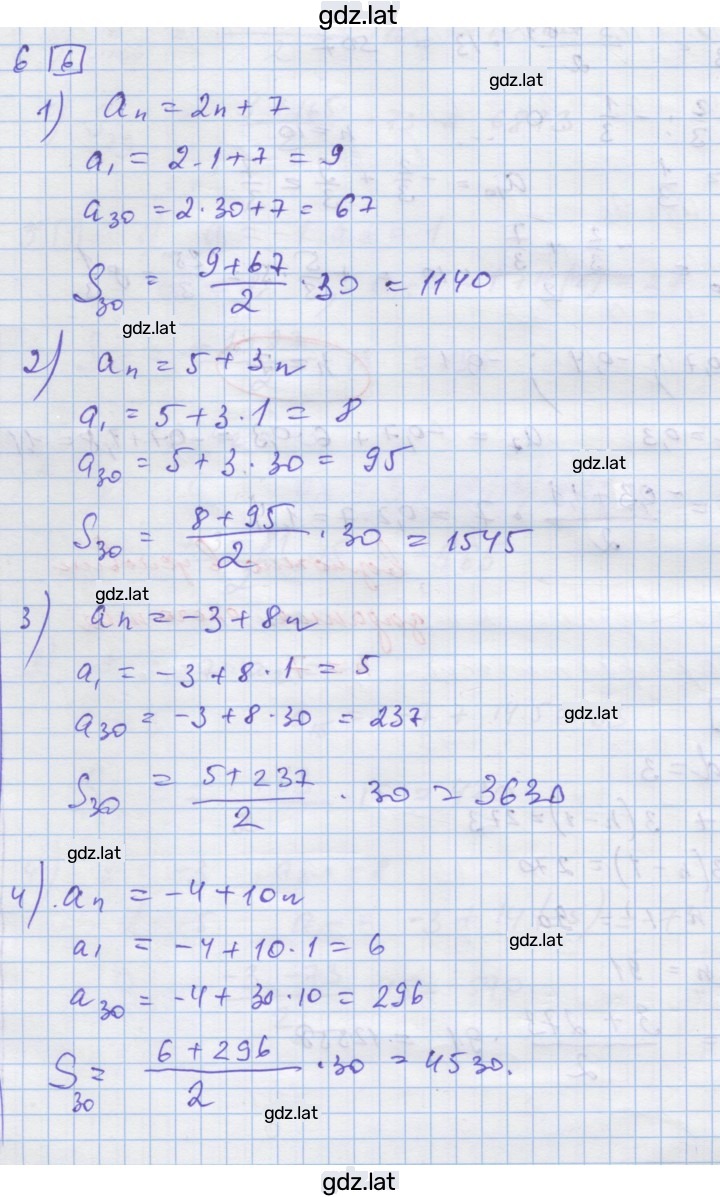 gdz.lat
6 6
gdz.lat
1) aₙ = 2n + 7
a₁ = 2·1+7 = 9
a₃₀ = 2·30+7 = 67
S₃₀ = (9+67)/2 · 30 = 1140
gdz.lat
2) aₙ = 5 + 3n
a₁ = 5 + 3·1 = 8
a₃₀ = 5 + 3·30 = 95
gdz.lat
S₃₀ = (8+95)/2 · 30 = 1545
gdz.lat
3) aₙ = -3 + 8n
a₁ = -3 + 8·1 = 5
a₃₀ = -3 + 8·30 = 237
gdz.lat
S₃₀ = (5+237)/2 · 30 = 3630
gdz.lat
4) aₙ = -4 + 10n
a₁ = -4 + 10·1 = 6
gdz.lat
a₃₀ = -4 + 30·10 = 296
S₃₀ = (6+296)/2 · 30 = 4530.
gdz.lat
gdz.lat